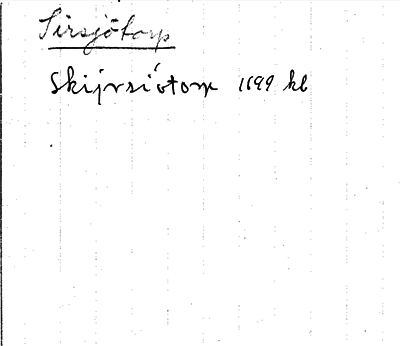 Sirsjötorp
Skijrsiötorp 1699 kb